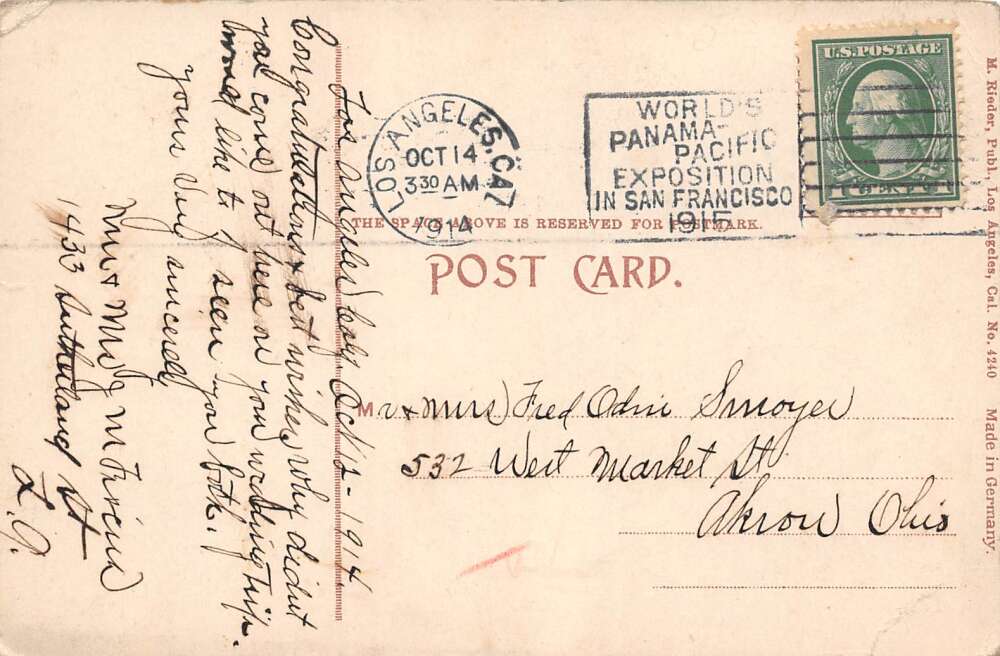 Los Angeles Calif Oct 12 - 1914
Congratulations & best wishes, Why didnt
you come out here on your wedding trip.
would like to of seen you both.
yours very sincerely
Mr & Mrs J M
1433 Sutherland St
L.A.
LOS ANGELES, CAL.
OCT 14
3 30 AM
1914
WORLD'S
PANAMA-
PACIFIC
EXPOSITION
IN SAN FRANCISCO
1915
U.S. POSTAGE
THE SPACE ABOVE IS RESERVED FOR POSTMARK.
POST CARD.
Mr & Mrs Fred Odin Smoyer
532 West Market St.
Akron Ohio
M. Rieder, Publ., Los Angeles, Cal. No. 4240 Made in Germany.